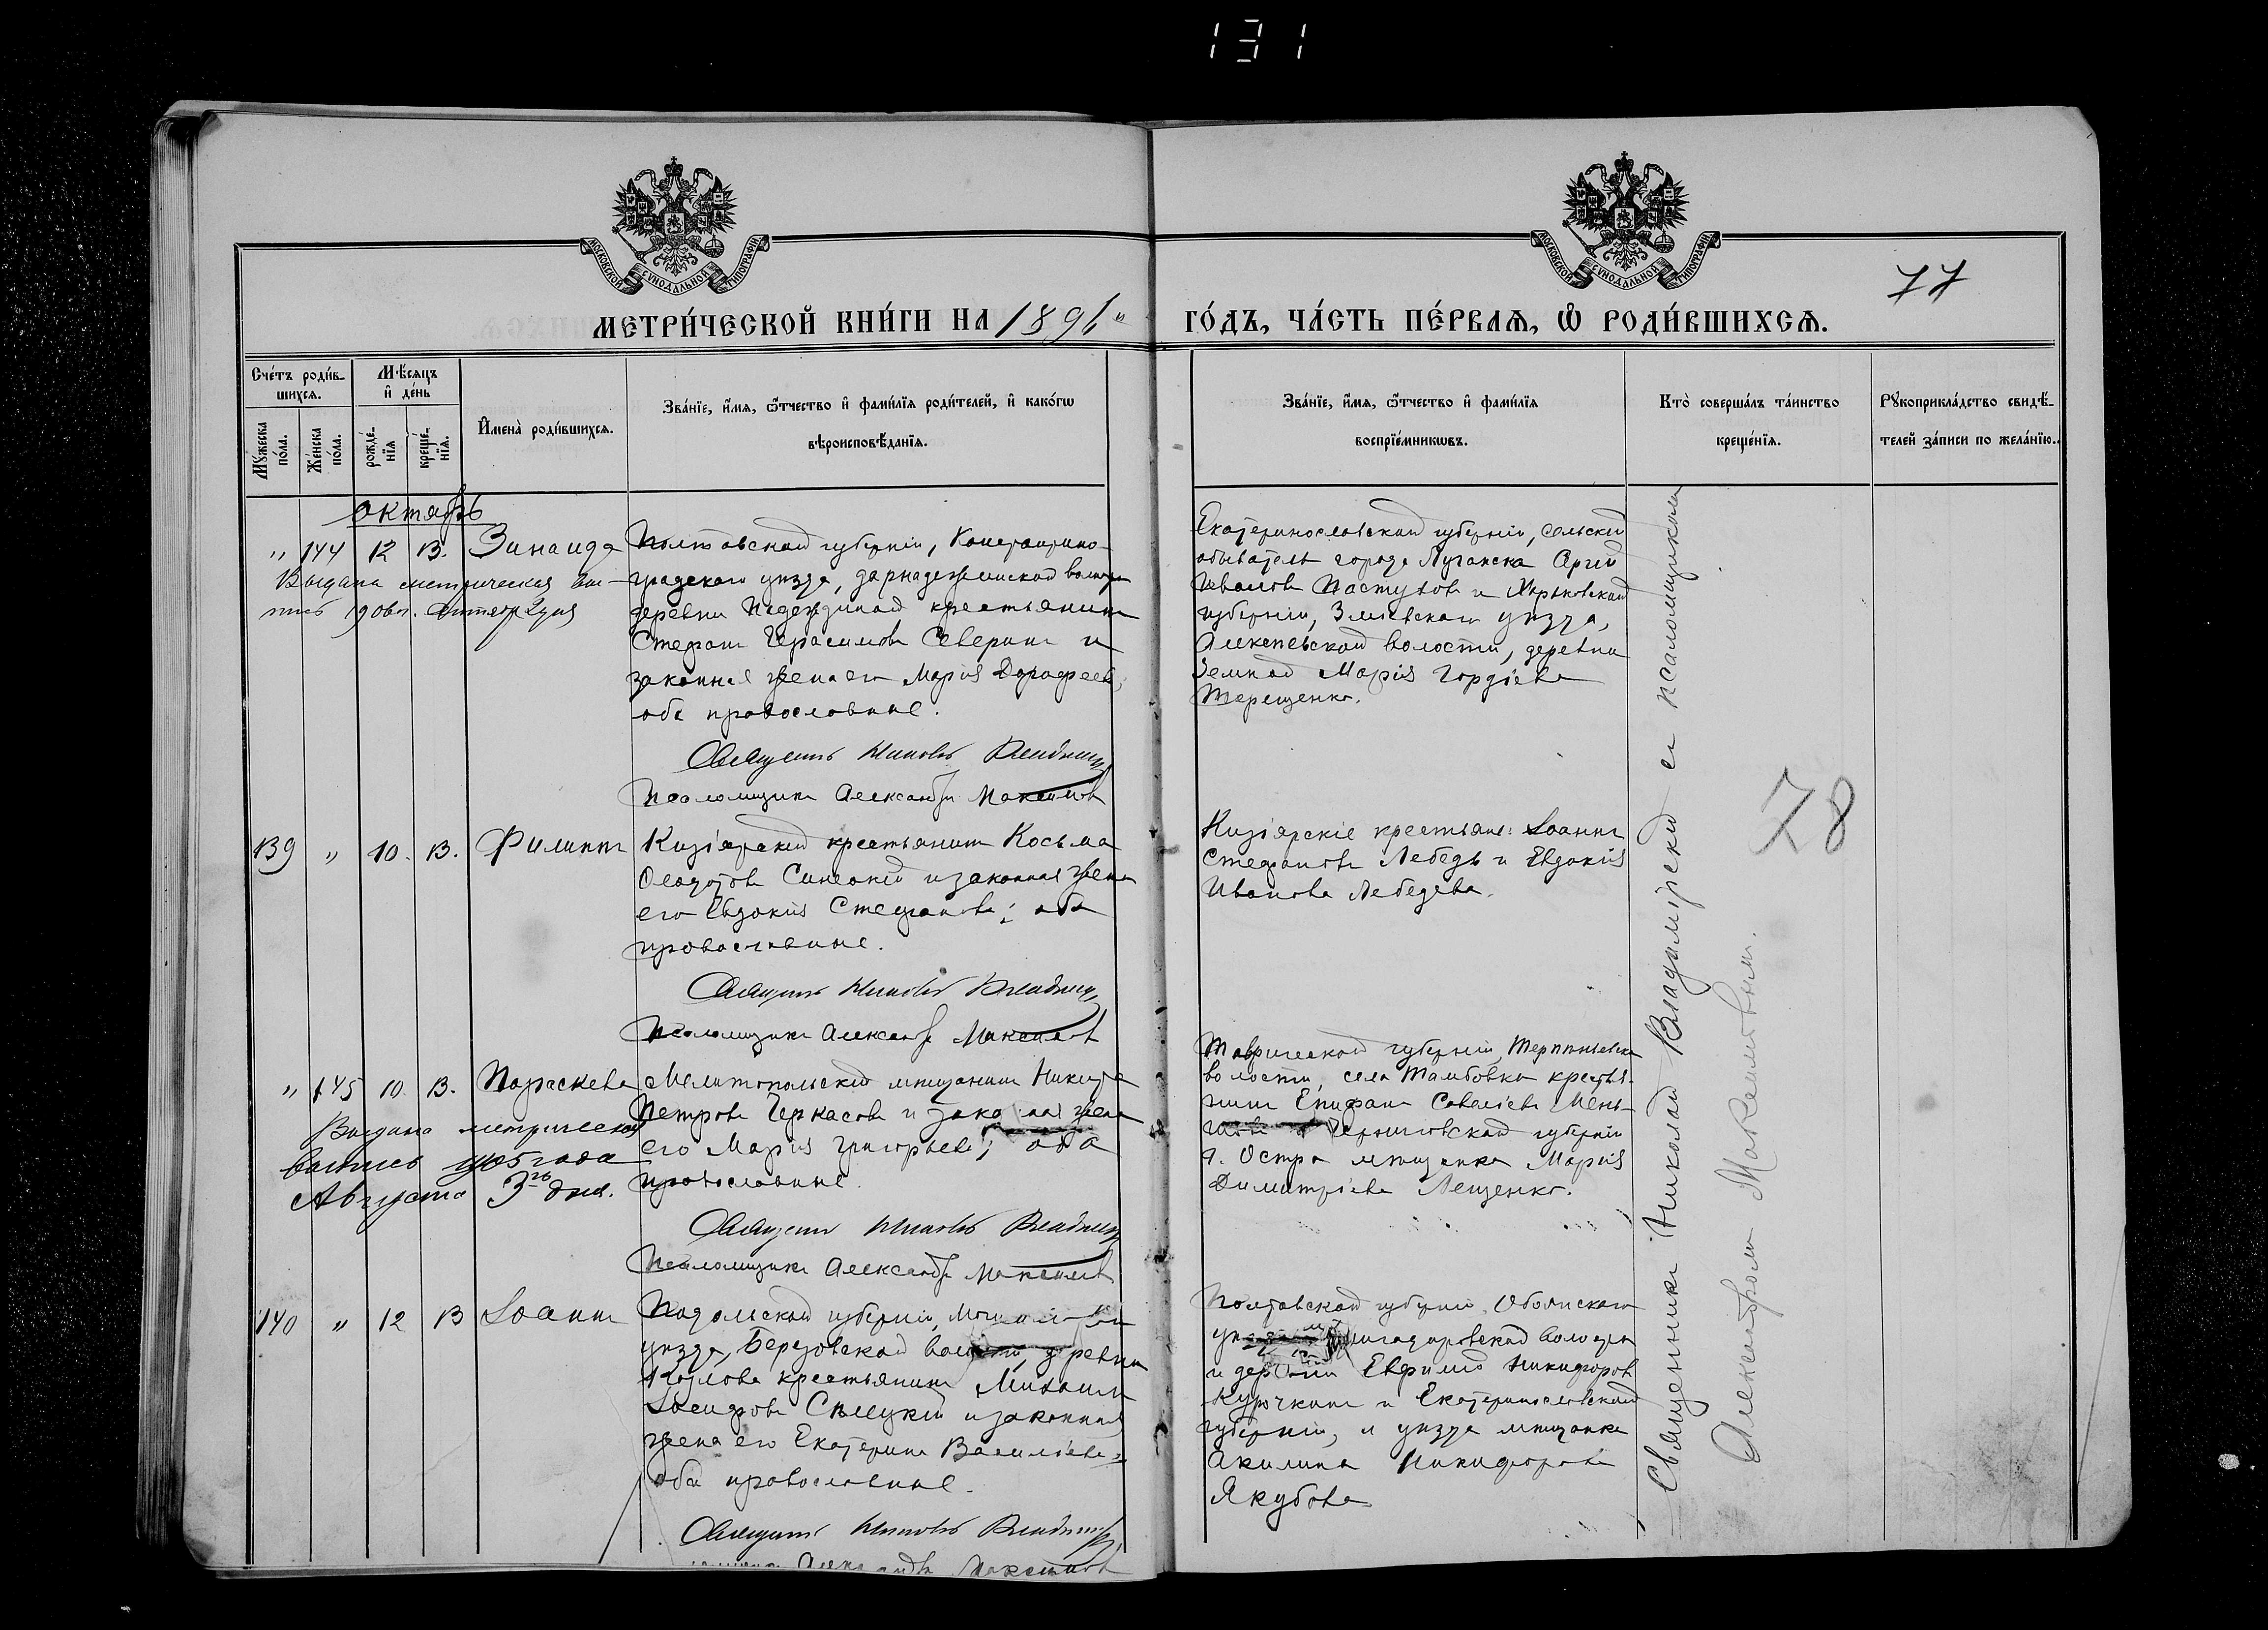 131
МОСКОВСКОЙ СѴНОДАЛЬНОЙ ТИПОГРАФІИ
МОСКОВСКОЙ СѴНОДАЛЬНОЙ ТИПОГРАФІИ
77
МЕТРИ́ЧЕСКОЙ КНИ́ГИ НА 1891
ГО́ДЪ, ЧА́СТЬ ПЕ́РВАѦ, Ѡ҆ РОДИ́ВШИХСѦ.
Сче́тъ роди́в-
шихсѧ.
Мꙋ́жеска по́ла.
Же́нска по́ла.
Мѣ́сѧцъ
и҆ де́нь
рожде́-нїѧ
креще́-нїѧ.
И҆мена̀ роди́вшихсѧ.
Зва́нїе, и҆́мѧ, ѻ҆́тчество и҆ фами́лїѧ роди́телей, и҆ како́гѡ
вѣроисповѣ́данїѧ.
Зва́нїе, и҆́мѧ, ѻ҆́тчество и҆ фами́лїѧ
воспрїе́мникѡвъ.
Кто̀ соверша́лъ та́инство
креще́нїѧ.
Рꙋкоприкла́дство свидѣ́-
телей за́писи по жела́нїю.
октябрь
" 144 12 13. Зинаида
Выдана метрическая вы-
пись
Полтавской губерніи, Константино-
градскаго уѣзда, волости
деревни крестьянинъ
Стефанъ Герасимовъ Северинъ и
законная жена его Марія Дорофеева,
оба православные.
Священникъ Николай Владимірскій
Псаломщикъ Александръ Максимовъ
Екатеринославской губерніи, сельскій
обыватель города Луганска
Ивановъ Пастуховъ и Харьковской
губерніи, Зміевскаго уѣзда,
Алексѣевской волости, деревни
Земной Марія Гордіева
Терещенко.
139 " 10. 13. Филиппъ
Кизіярскій крестьянинъ Косьма
Ѳеодотовъ и законная жена
его Евдокія Стефанова; оба
православные.
Священникъ Николай Владимірскій
Псаломщикъ Александръ Максимовъ
Кизіярскіе крестьяне: Іоаннъ
Стефановъ Лебедь и Евдокія
Иванова Лебедева.
" 145 10 13. Параскева
Выдана метрическая
выпись 1905 года
Августа 3го дня.
Мелитопольскій мѣщанинъ Никита
Петровъ Черкасовъ и законная жена
его Марія Григорьева; оба
православные.
Священникъ Николай Владимірскій
Псаломщикъ Александръ Максимовъ
Таврической губерніи, Терпѣньевской
волости, села Тамбовки крестья-
нинъ Епифанъ Савельевъ
Черниговской губерніи
г. Остра мѣщанка Марія
Димитріева Лещенко.
140 " 12 13 Іоаннъ
Подольской губерніи,
уѣзда, Березовской волости, деревни
Козлова крестьянинъ Михаилъ
Іосифовъ и законная
жена его Екатерина Васильева
оба православные.
Священникъ Николай Владимірскій
Александръ Максимовъ
Полтавской губерніи
волости
и деревни Евфимій Никифоровъ
Курочкинъ и Екатеринославской
губерніи, и уѣзда мѣщанка
Акилина Никифорова
Якубова
Священникъ Николай Владимірскій съ псаломщикомъ
Александромъ Максимовымъ.
78